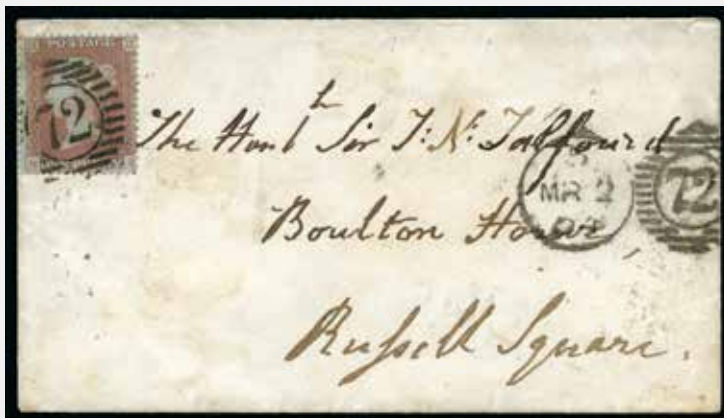 POSTAGE
72
The Honble Sir T: N: Talfourd
MR 2
72
Boulton House
Russell Square.